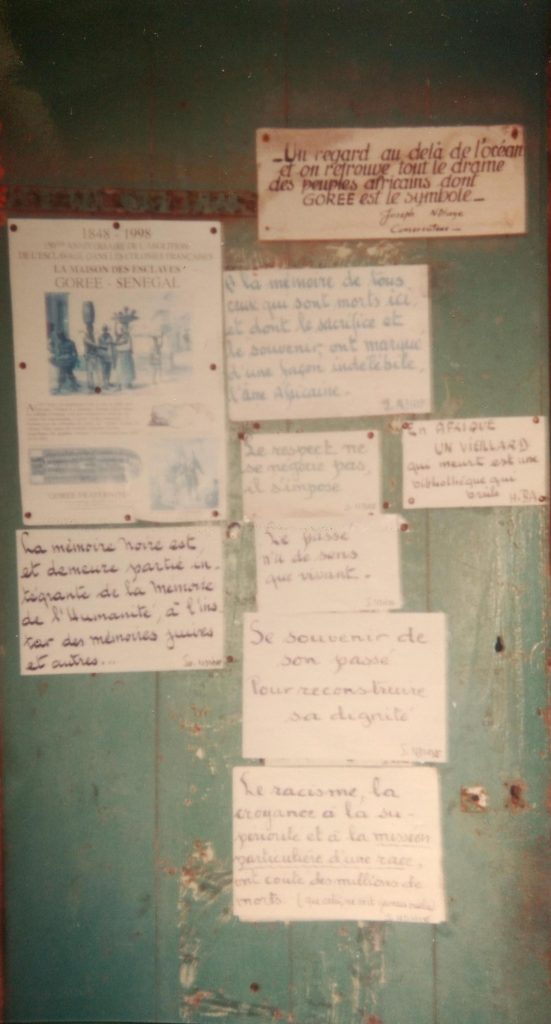 _Un regard au delà de l'océan
et on retrouve tout le drame
des peuples africains dont
GOREE est le symbole_
Joseph Ndiaye
Conservateur
1848 - 1998
150ÈME ANNIVERSAIRE DE L'ABOLITION
DE L'ESCLAVAGE DANS LES COLONIES FRANÇAISES
LA MAISON DES ESCLAVES
GOREE - SENEGAL
GOREE FRATERNITE
A la mémoire de tous
ceux qui sont morts ici,
et dont le sacrifice et
le souvenir, ont marqué
d'une façon indélébile,
l'âme Africaine.
Le respect ne
se négocie pas,
il s'impose
En AFRIQUE
UN VIEILLARD
qui meurt est une
bibliothèque qui
brule H.BA
Le passé
n'a de sens
que vivant.
La mémoire Noire est,
et demeure partie in-
tégrante de la Mémoire
de l'Humanité, à l'ins
tar des mémoires juives
et autres...
Se souvenir de
son passé
Pour reconstruire
sa dignité
Le racisme, la
croyance à la su-
périorité et à la mission
particulière d'une race,
ont couté des millions de
morts. (que cela, ne soit jamais oublié)